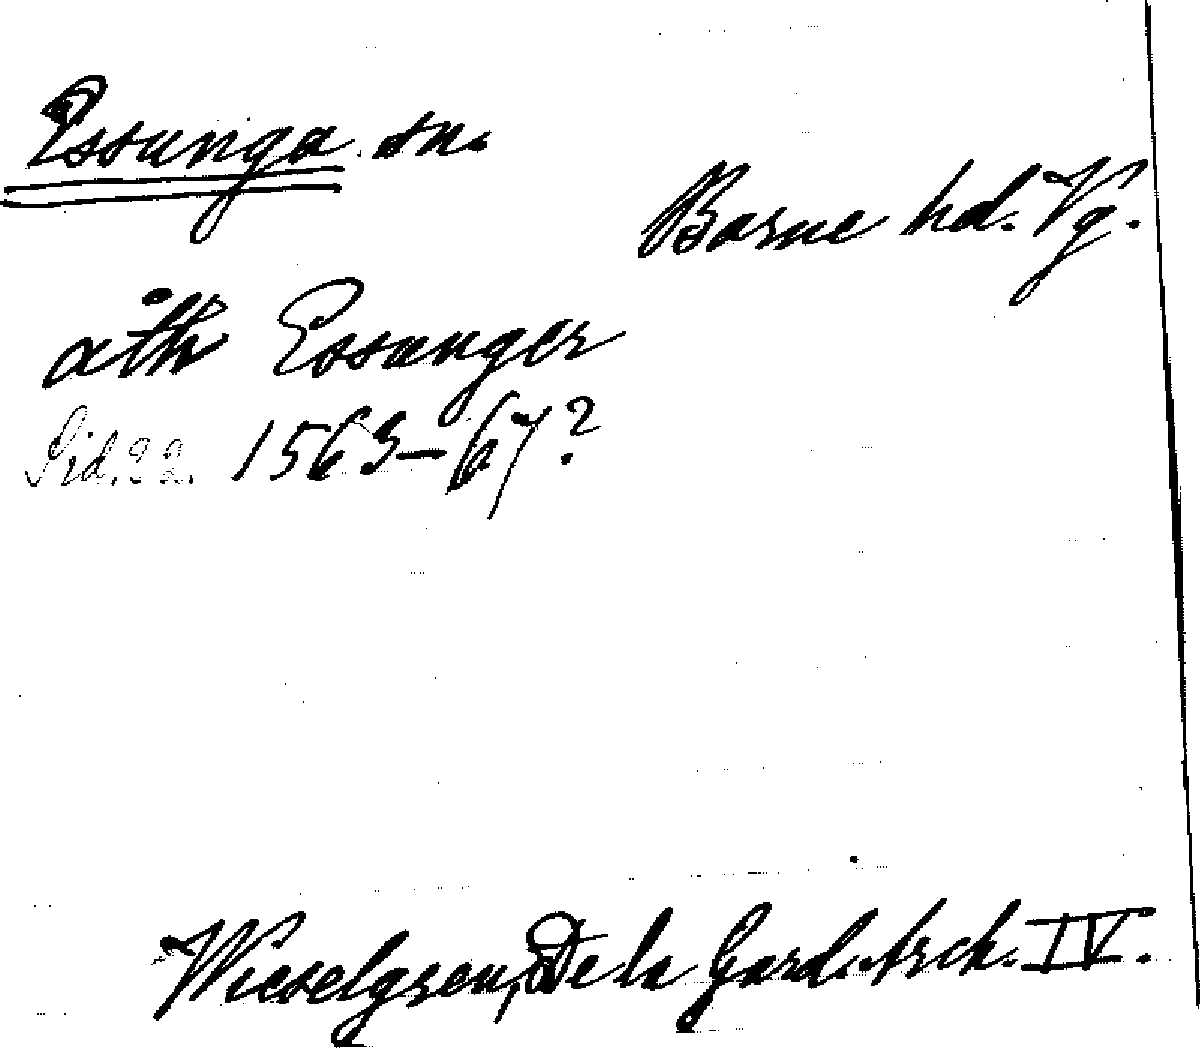 Essunga sn.
Barne hd. Vg.
åth Essunger
Sid. 22. 1563-67?
Wieselgren, De la Gard. Arch. IV.